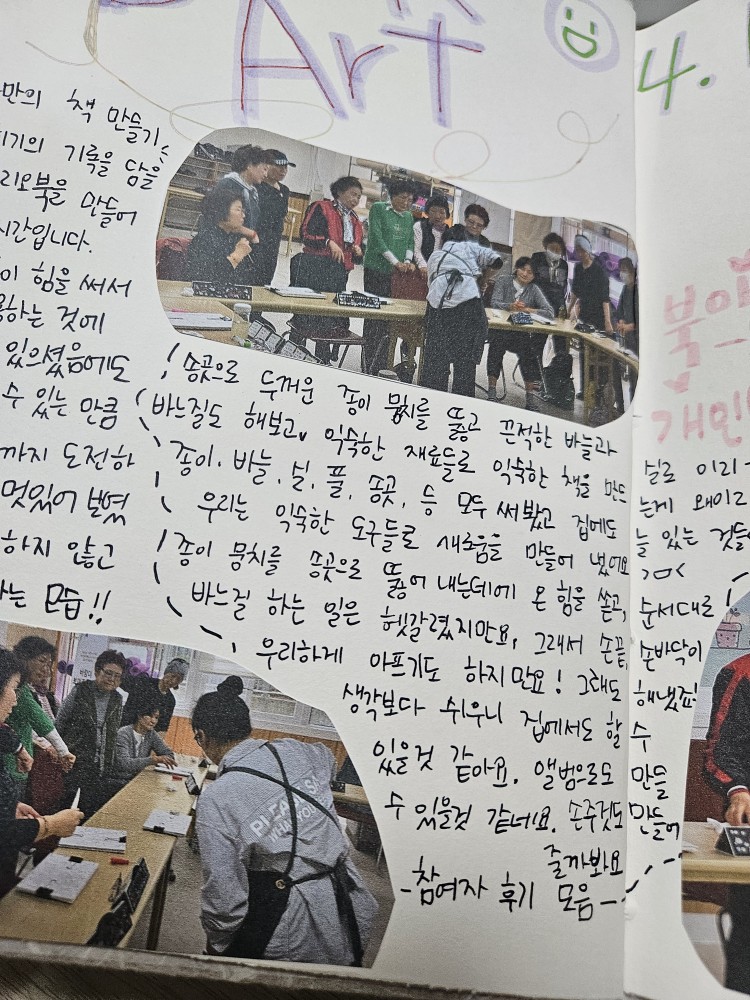 Art
4.
만의 책 만들기
기의 기록을 담을
리오북을 만들어
시간입니다.
이 힘을 써서
하는 것에
있으셨음에도
수 있는 만큼
까지 도전하
멋있어 보였
하지 않고
는 모습!!
송곳으로 두꺼운 종이 뭉치를 뚫고 끈적한 바늘과
바느질도 해보고, 익숙한 재료들로 익숙한 책을 만드
종이, 바늘, 실, 풀, 송곳, 등 모두 써봤고 집에도
우리는 익숙한 도구들로 새로움을 만들어 냈어요
종이 뭉치를 송곳으로 뚫어 내는데에 온 힘을 쏟고,
바느질 하는 일은 헷갈렸지만요, 그래서 손끝, 손바닥이
우리하게 아프기도 하지만요! 그래도 해냈죠!
생각보다 쉬우니 집에서도 할 수
있을것 같아요. 앨범으로도 만들
수 있을것 같네요. 손주것도 만들어
줄까봐요
-참여자 후기 모음-
PLEASE!
북아
개인
실로 이리
는게 왜이리
늘 있는 것들
순서대로